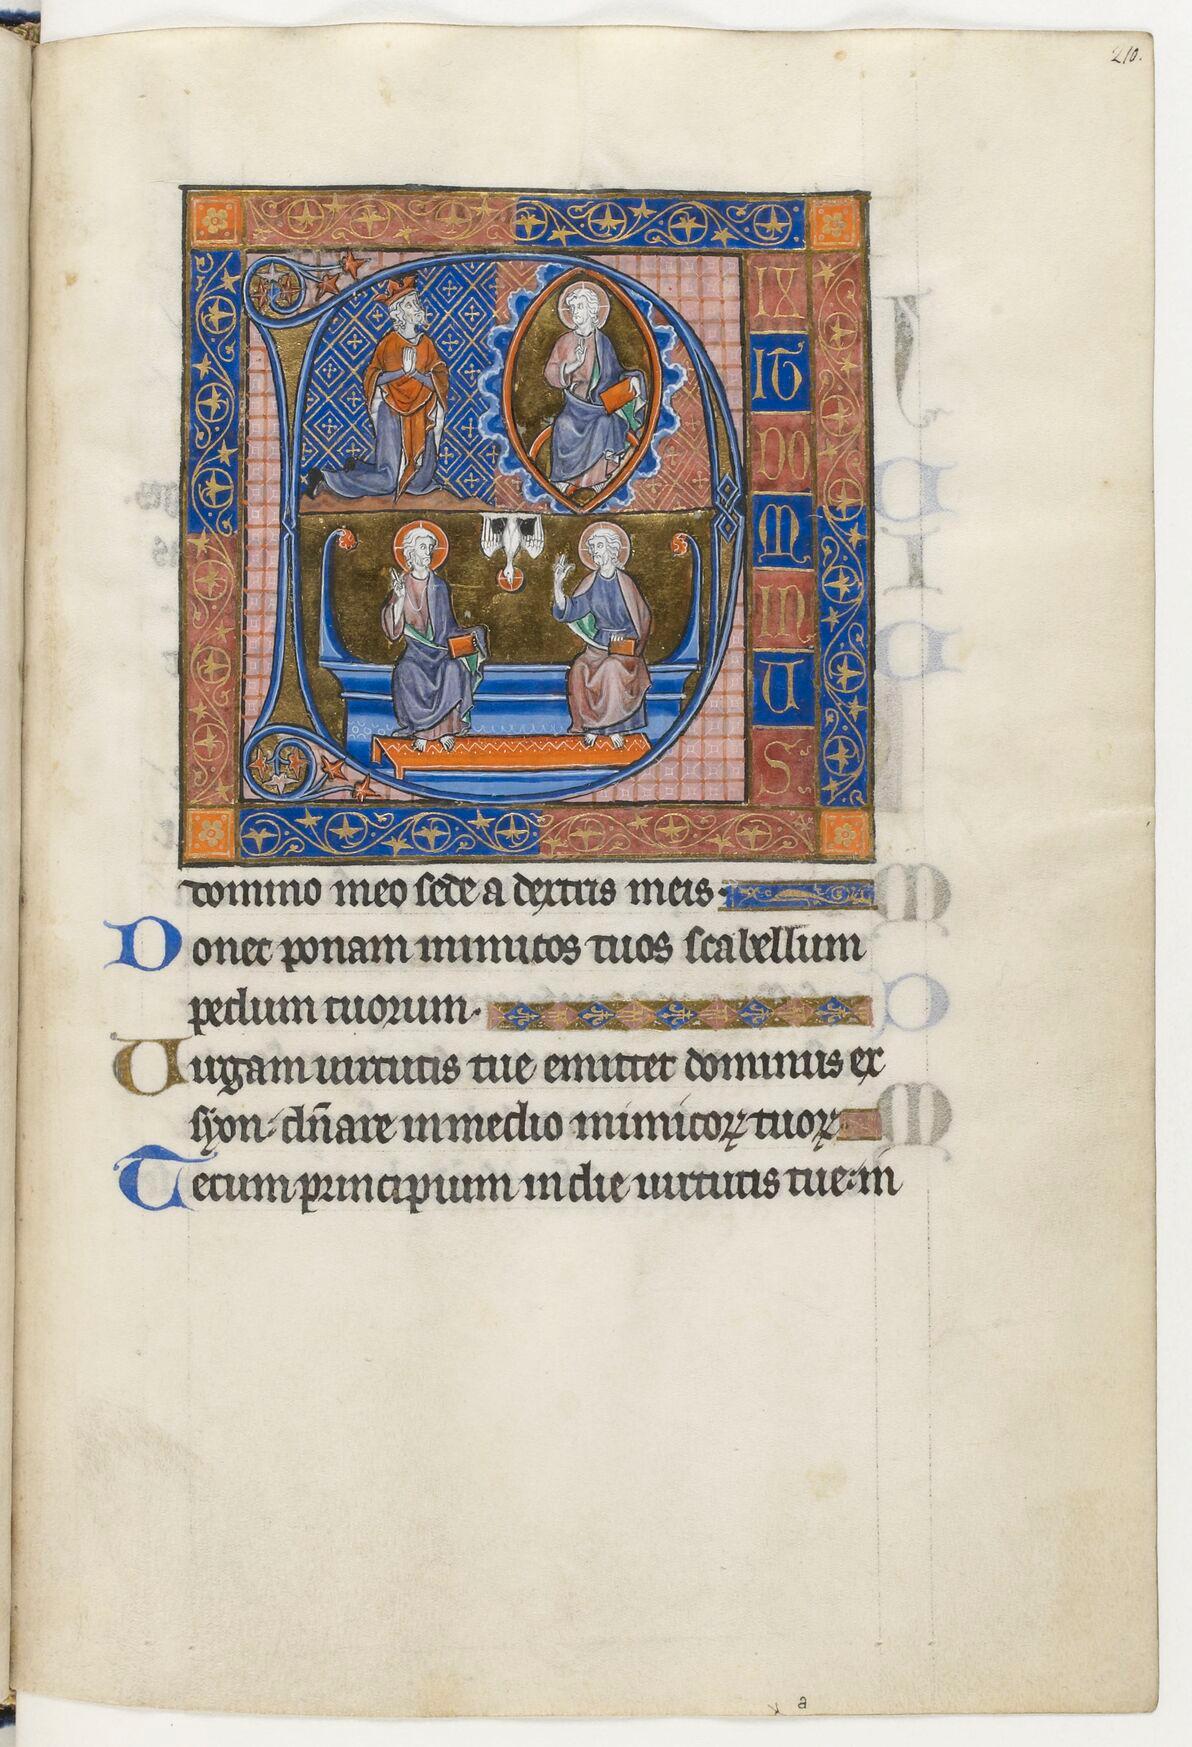 210.
D
IX
IT
DO
M
IN
U
S
domino meo sede a dextris meis.
Donec ponam inimicos tuos scabellum
pedum tuorum.
Uirgam uirtutis tue emittet dominus ex
syon: dñare in medio inimicoꝝ tuoꝝ
Tecum principium in die uirtutis tue: in
a